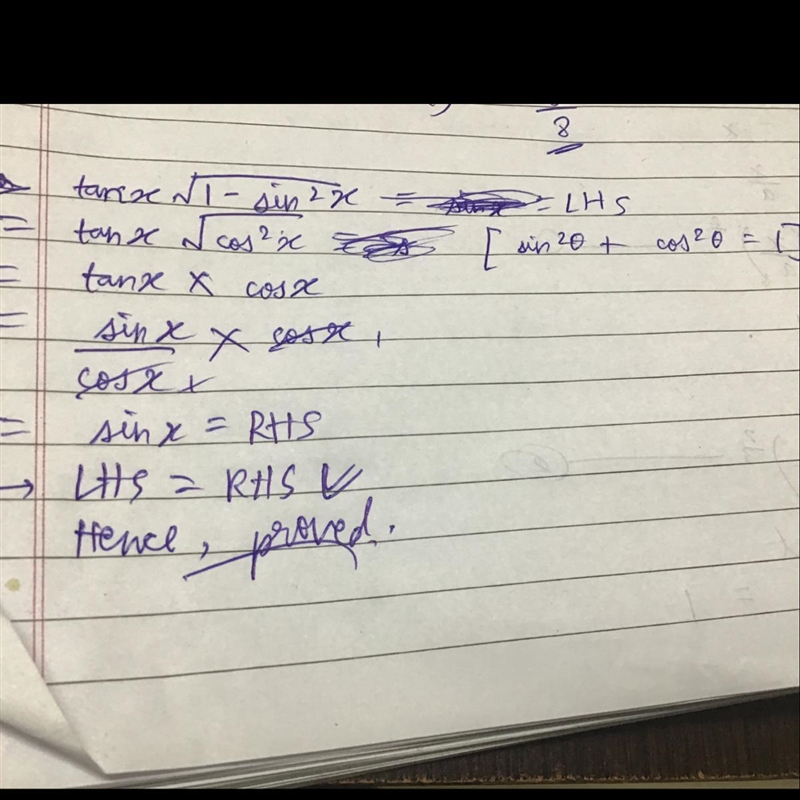 8
tanx √1 - sin²x = = LHS
= tanx √cos²x [sin²θ + cos²θ = 1]
= tanx × cosx
= sinx × cosx
cosx
= sinx = RHS
→ LHS = RHS
Hence, proved.